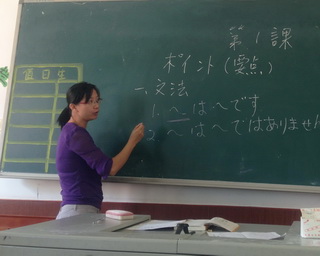 值日生
第1課
ポイント(要点)
一、文法
1. ～は～です
2 ～は～ではありません